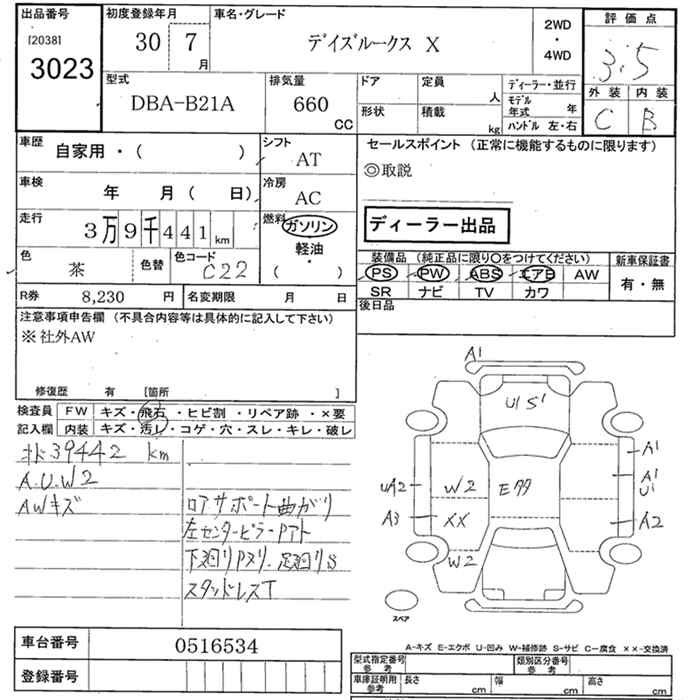 出品番号
[2038]
3023
初度登録年月
30 7
月
車名・グレード
デイズルークス X
2WD
・
4WD
評価点
3.5
外装 内装
C B
型式
DBA-B21A
排気量
660
CC
ドア 定員
人
形状 積載
kg
ディーラー・並行
モデル年式 年
ハンドル 左・右
車歴
自家用・( )
シフト
AT
車検
年 月( 日)
冷房
AC
走行
3万9千441km
燃料
ガソリン
・
軽油
・
( )
色
茶
色替
色コード
C22
R券 8,230 円
名変期限 月 日
セールスポイント (正常に機能するものに限ります)
◎取説
ディーラー出品
装備品 (純正品に限り〇をつけてください)
PS PW ABS エアB AW
SR ナビ TV カワ
新車保証書
有・無
後日品
注意事項申告欄 (不具合内容等は具体的に記入して下さい)
※社外AW
修復歴 有 [箇所 ]
検査員
記入欄
FW キズ・飛石・ヒビ割・リペア跡・×要
内装 キズ・汚レ・コゲ・穴・スレ・キレ・破レ
39442 km
A.U.W2
AWキズ
ロアサポート曲がり
左センターピラーPアト
下廻りPスリ.足廻りS
スタッドレスT
A1
U1 S1
A1
A1
U1
UA2 W2 Eクク
A3 XX
A2
W2
スペア
A-キズ E-エクボ U-凹み W-補修跡 S-サビ C-腐食 ××-交換済
車台番号 0516534
登録番号
型式指定番号
参考
類別区分番号
参考
車庫証明用
参考
長さ cm 幅 cm 高さ cm